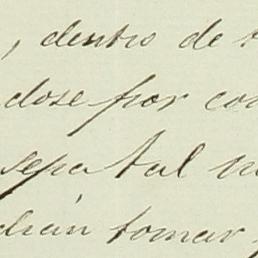 , dentro de
dose por con
sepa tal
drán tomar